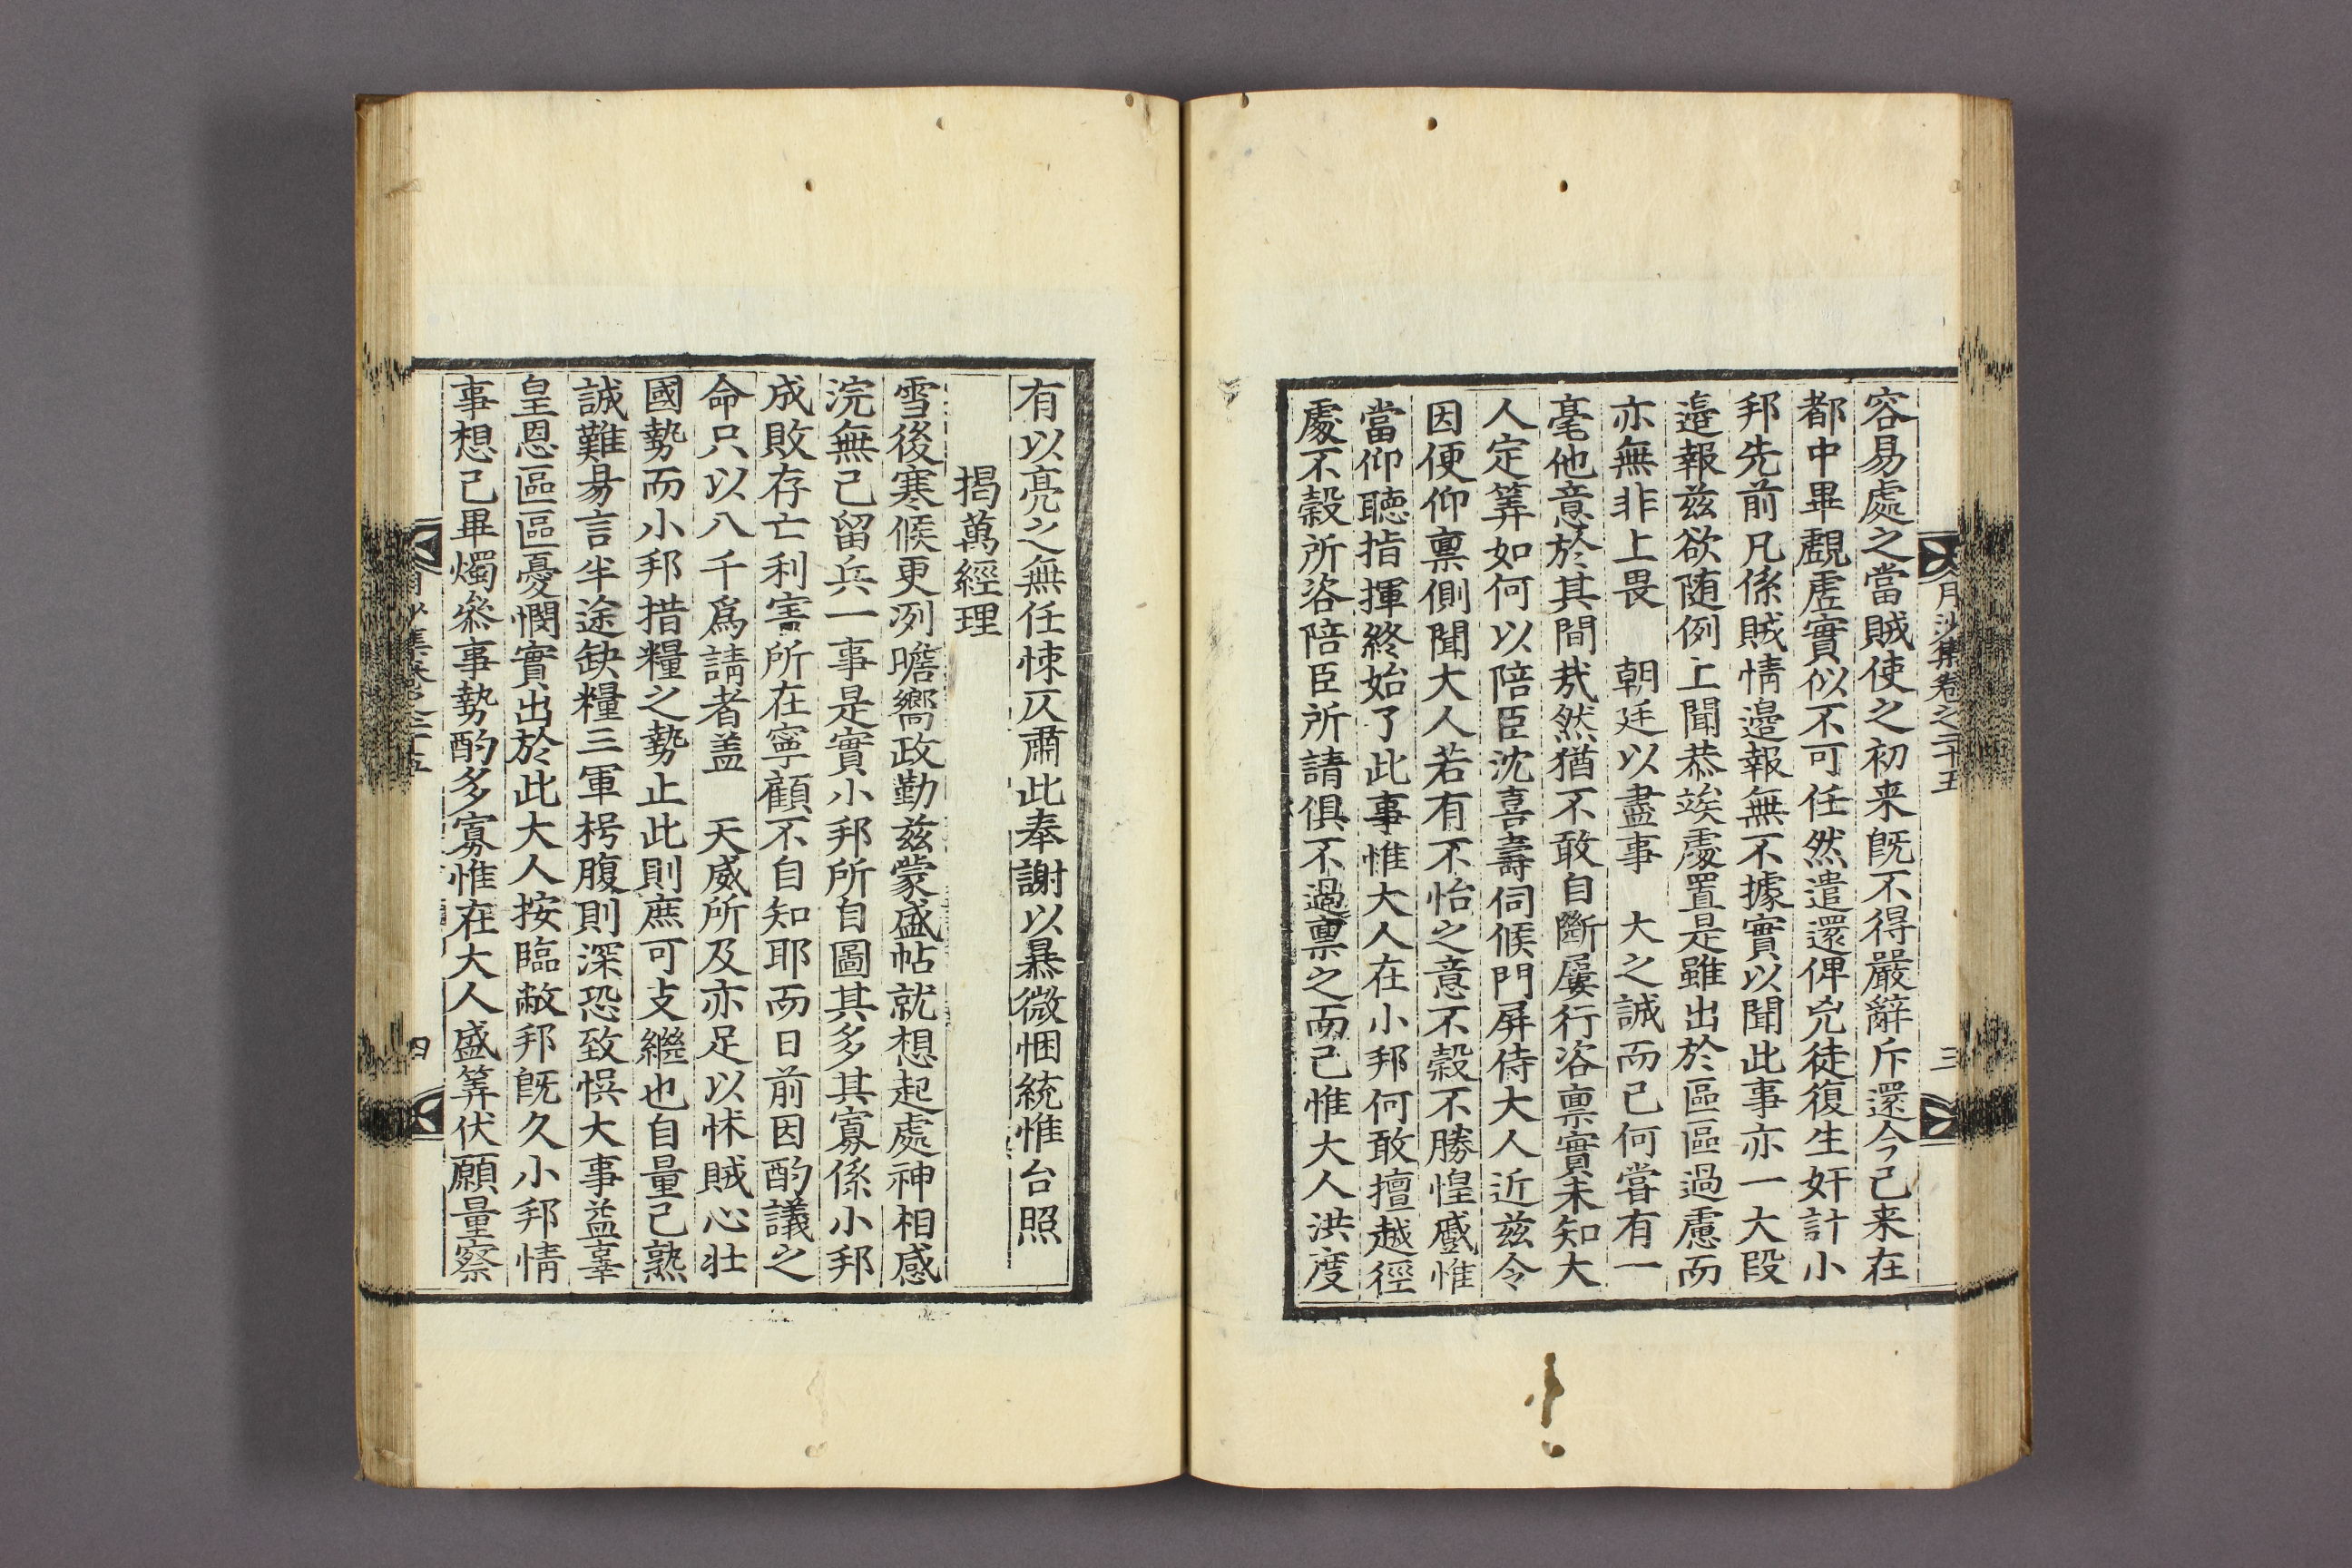 月沙集卷之二十五
三
容易處之當賊使之初来旣不得嚴辭斥還今已来在
都中畢覰虛實似不可任然遣還俾兇徒復生奸計小
邦先前凡係賊情邊報無不據實以聞此事亦一大段
邊報兹欲随例上聞恭竢處置是雖出於區區過慮而
亦無非上畏　朝廷以盡事　大之誠而已何嘗有一
毫他意於其間㢤然猶不敢自斷屢行咨禀實未知大
人定筭如何以陪臣沈喜壽伺候門屏侍大人近兹令
因便仰禀側聞大人若有不怡之意不穀不勝惶蹙惟
當仰聽指揮終始了此事惟大人在小邦何敢擅越徑
處不穀所咨陪臣所請俱不過禀之而已惟大人洪度
有以亮之無任悚仄肅此奉謝以暴微悃統惟台照
揭萬經理
雪後寒候更冽瞻嚮政勤兹蒙盛帖就想起處神相感
浣無已留兵一事是實小邦所自圖其多其寡係小邦
成敗存亡利害所在寧顧不自知耶而日前因酌議之
命只以八千爲請者盖　天威所及亦足以怵賊心壯
國勢而小邦措糧之勢止此則庶可支繼也自量已熟
誠難易言半途缺糧三軍枵腹則深恐致悞大事益辜
皇恩區區憂憫實出於此大人按臨敝邦旣久小邦情
事想已畢燭叅事勢酌多寡惟在大人盛筭伏願量察
月沙集卷之二十五
四